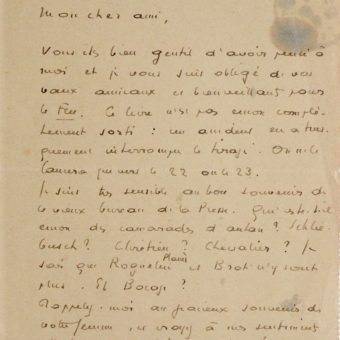 Mon cher ami,
Vous êtes bien gentil d'avoir pensé à
moi et je vous suis obligé de vos
vœux amicaux et bienveillants pour
le Feu. Ce livre n'est pas encore complè-
tement sorti : un accident en a brus-
quement interrompu le tirage. On ne le
lancera que vers le 22 ou le 23.
Je suis très sensible au bon souvenir de
le vieux bureau de la Presse. Qui reste-t-il
encore des camarades d'antan ?
busch ? Chrétien ? Chevalier ? Je
Plaud
sais que Roguelin et Brot n'y sont
plus. Et Bocage ?
Rappelez-moi au gracieux souvenir de
votre femme, et croyez à mes sentiments